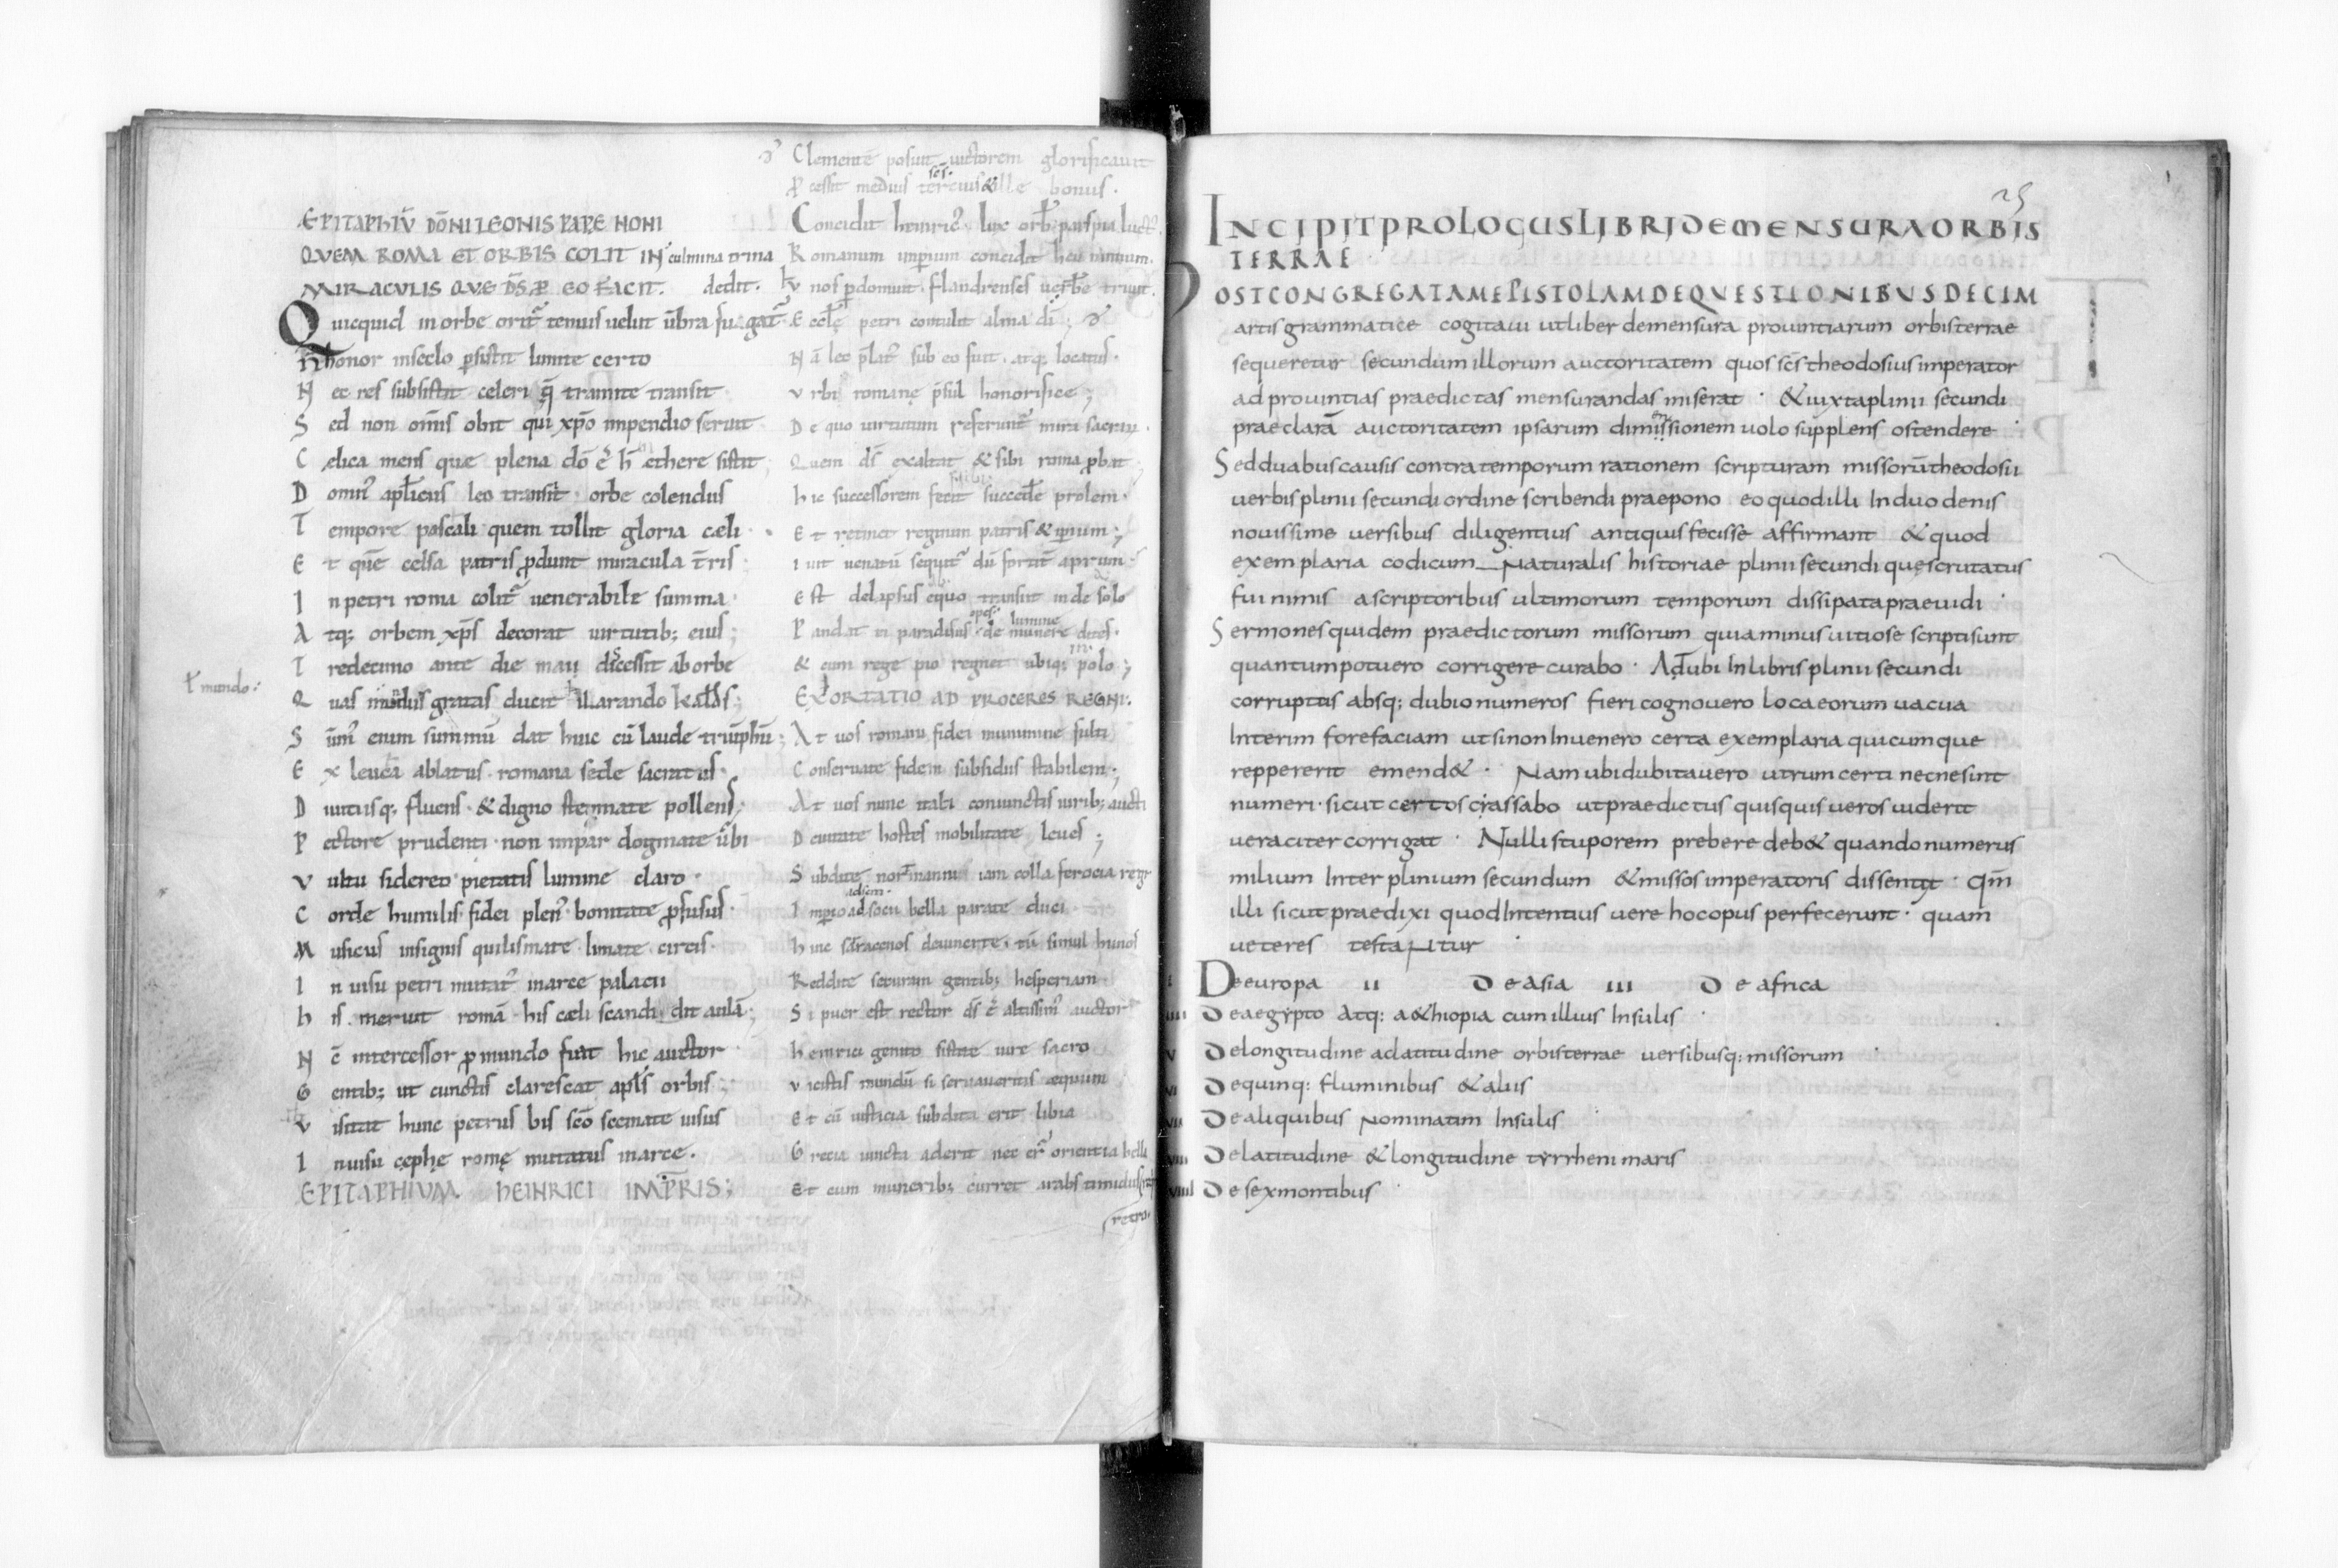 EPITAPHIV̄ DŌNI LEONIS PAPE NONI
QVEM ROMA ET ORBIS COLIT IN culmina trina
MIRACULIS QVE DS̄ P̱ EO FACIT. dedit.
Quicquid in orbe orit᷑ tenuis uelut ūbra fugat᷑
honor in seclo ꝑsistit limite certo
N ec res subsistit celeri q̄ tramite transit
S ed non om̄s obit qui xp̄o impendio seruit
C elica mens que plena dō ē h̄ ethere sistit
D omn᷒ apl̄icus leo transit orbe colendus
T empore pascali quem tollit gloria cæli
E t quē celsa patris ꝓdunt miracula t̄ris
I n petri roma colit᷑ uenerabile summa
A tq; orbem xp̄s decorat uirtutib; eius;
T redecimo ante die maii discessit ab orbe
ł mundo:
Q uas mundus gratas ducit hilarando kaldas;
S ūm᷒ enim summū dat huic cū laude triūphū;
E x leuca ablatus romana sede sacratus
D iuitiisq; fluens & digno stemmate pollens;
P ectore prudenti non impar dogmate ubi
V ultu sidereo pietatis lumine claro
C orde humilis fidei plen᷒ bonitate ꝓfusus
M usicus insignis quilismate limate cirtis
I n uisu petri mutat᷒ marce palacii
h is meruit romā his cæli scandidit aulā;
N c̄ intercessor ꝓ mundo fuit hic auctor
G entib; ut cunctis clarescat apl̄s orbis
V isitat hunc petrus bis scō scemate uisus
I nuisu cephę romę mutatus marce.
EPITAPHIVM HEINRICI IMPRIS;
Clementē posuit uictorem glorificauit
ꝓcessit medius tercius & ille bonus.
Concidit heinric᷒ lux orb; pars pia luct᷒
Romanum imperium concidit heu nimium.
V nos perdomuit flandrenses uerbere truit.
E cclę petri contulit alma dī;
N ā leo p̄lat᷒ sub eo fuit atq; locatus.
V rbi romanę p̄sul honorifice;
D e quo uirtutum referunt᷑ mira sacrum.
Quem ds̄ exaltat & sibi roma ꝓbat
hic successorem fecit succedere prolem.
E t retinet regnum patris & ipsum;
I uit uenatū sequit᷑ dū fortit᷑ aprum
E st delapsus equo transiit inde solo
P andat ei paradisus opes de munere dites.
& cum rege pio regnet ubiq; polo;
EXORTATIO AD PROCERES REGNI.
A t uos romani fidei munimine fulti
C onseruate fidem subsidiis stabilem;
A t uos nunc itali coniunctis uirib; aucti
D euitate hostes mobilitate leues;
S ubdite normanni iam colla ferocia regi
I mperio ad socii bella parate duci
h inc sarracenos deuincere tū simul hunos
Reddite securam gentib; hesperiam
S i puer est rector ds̄ ē altissim᷒ auctor
heinrici genito sistite iure sacro
V icistis mundū si seruaueritis æquum
E t cū iusticia subdita erit libia
G recia iuncta aderit nec er᷑ orientia bella
E t cum munerib; curret arabs timidus
retro.
25
INCIPIT PROLOGUS LIBRI DE MENSURA ORBIS
TERRAE
POST CONGREGATAM EPISTOLAM DE QVESTIONIBVS DECIM
artis grammatice cogitaui ut liber de mensura prouintiarum orbis terrae
sequeretur secundum illorum auctoritatem quos sc̄s theodosius imperator
ad prouintias praedictas mensurandas miserat · & iuxta plinii secundi
praeclarā auctoritatem ipsarum dimissionem uolo supplens ostendere ·
Sed duabus causis contra temporum rationem scripturam missorū theodosii
uerbis plinii secundi ordine scribendi praepono eo quod illi In duo denis
nouissime versibus diligentius antiquis fecisse affirmant & quod
exemplaria codicum Naturalis historiae plinii secundi quę scrutatus
fui nimis a scriptoribus ultimorum temporum dissipata praeuidi ·
Sermones quidem praedictorum missorum quia minus uitiose scripti sunt
quantum potuero corrigere curabo · Ad ubi In libris plinii secundi
corruptus absq; dubio numeros fieri cognouero loca eorum uacua
Interim fore faciam ut si non Inuenero certa exemplaria quicumque
reppererit emend& · Nam ubi dubitauero utrum certi necne sint
numeri · sicut certos crassabo ut praedictus quisquis ueros uiderit
ueraciter corrigat · Nulli stuporem prebere deb& quando numerus
milium Inter plinium secundum & missos imperatoris dissentit · qm̄
illi sicut praedixi quod Intentius uere hoc opus perfecerunt · quam
ueteres testantur ·
I De europa II De asia III De africa
IIII De aegypto atq: a&hiopia cum illius Insulis ·
V De longitudine ac latitudine orbis terrae uersibusq: missorum ·
VI De quinq: fluminibus & aliis
VII De aliquibus Nominatim Insulis
VIII De latitudine & longitudine tyrrheni maris
VIIII De sex montibus ·